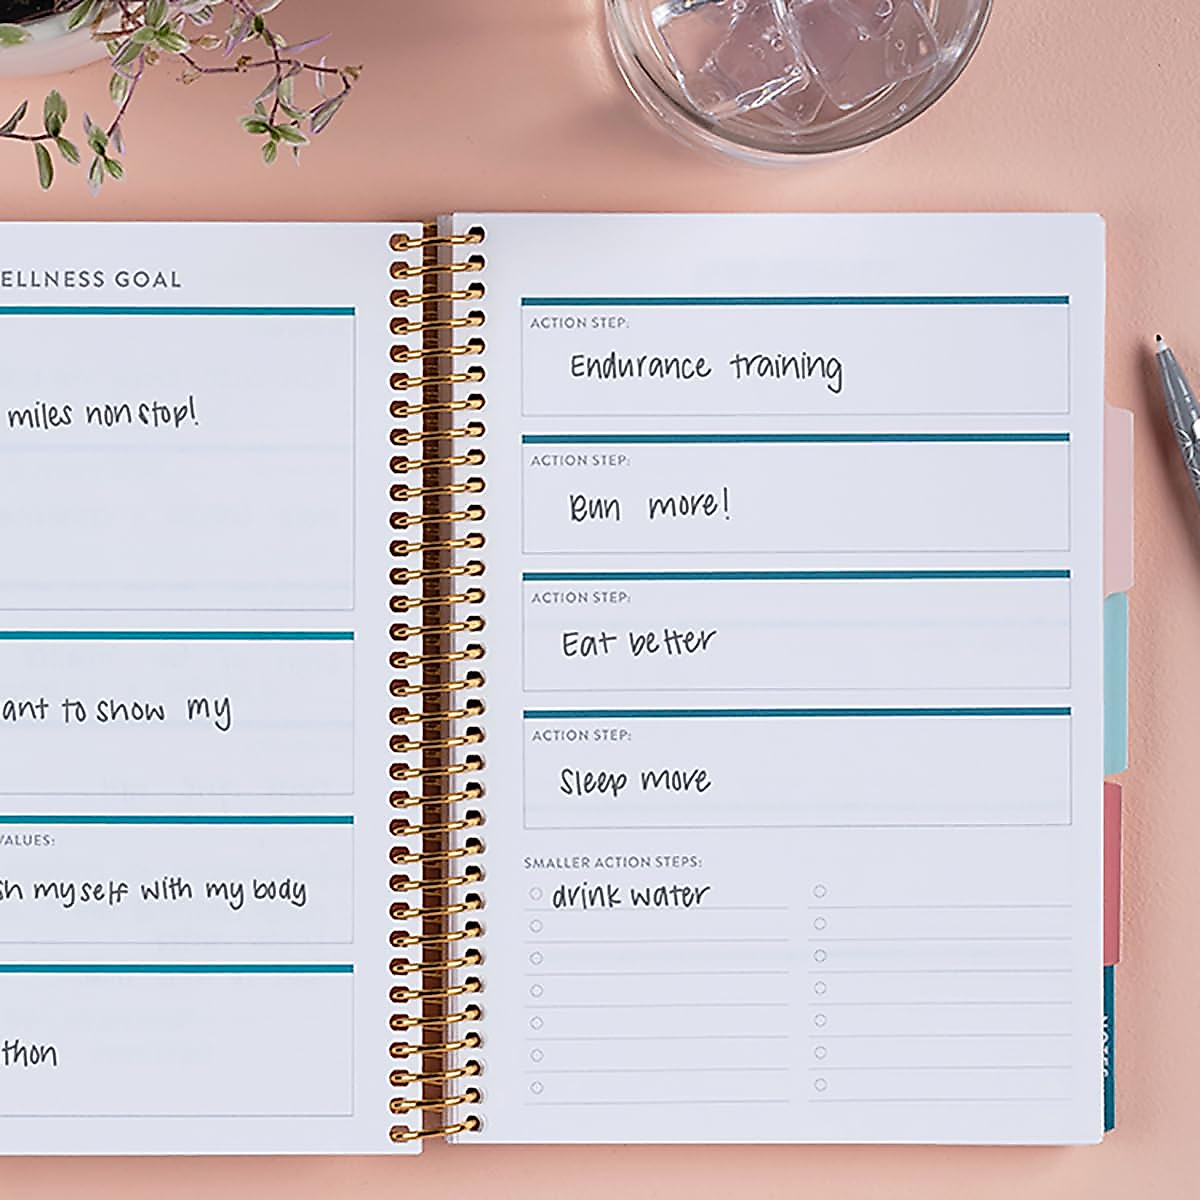 ELLNESS GOAL
miles nonstop!
ant to show my
VALUES:
sh myself with my body
thon
ACTION STEP:
Endurance training
ACTION STEP:
Run more!
ACTION STEP:
Eat better
ACTION STEP:
Sleep more
SMALLER ACTION STEPS:
drink water
NOTES